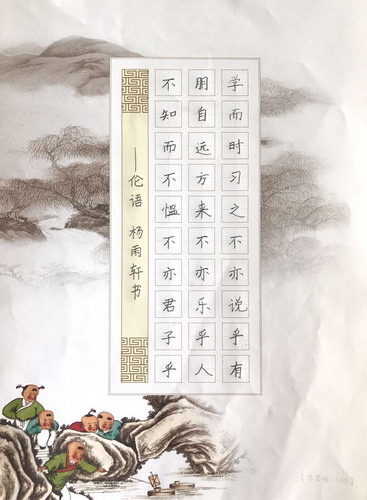 学而时习之不亦说乎有
朋自远方来不亦乐乎人
不知而不愠不亦君子乎
——伦语 杨雨轩书